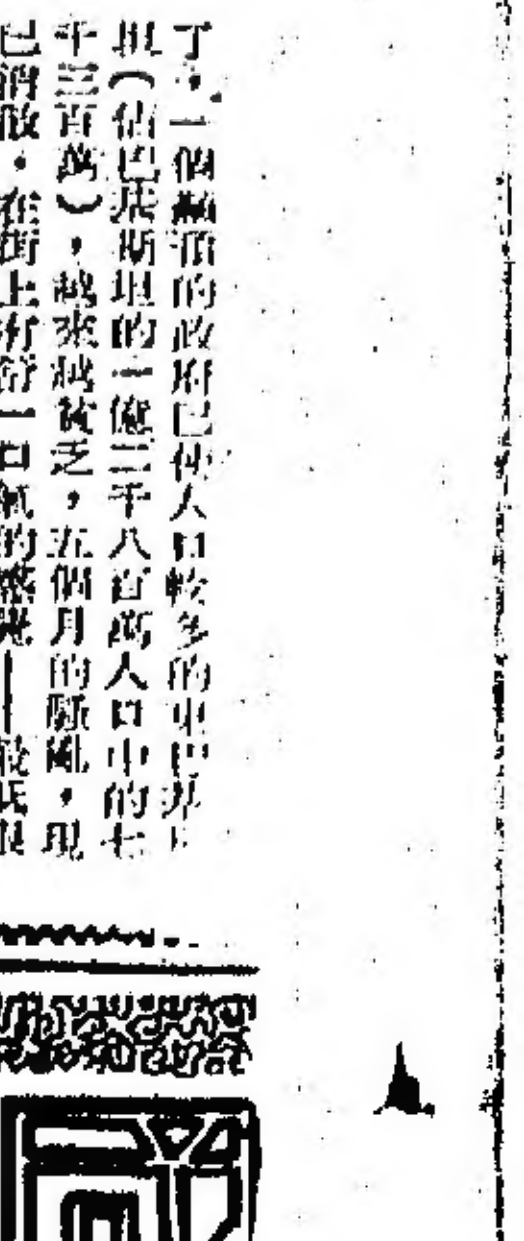 了，一個顢頇的政府已使人口較多的東巴基
坦（佔巴基斯坦的一億二千八百萬人口中的七
千三百萬），越來越貧乏，五個月的騷亂，現
已消散，在街上有舒一口氣的感覺——最低限